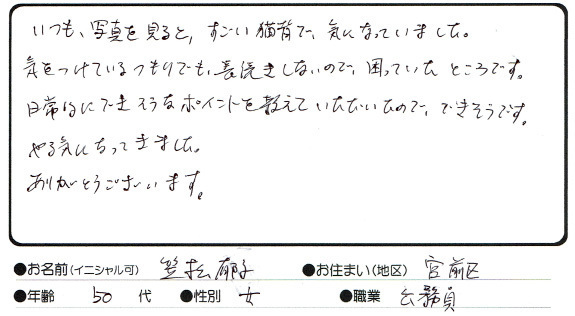 いつも、写真を見ると、すごい猫背で、気になっていました。
気をつけているつもりでも、長続きしないので、困っていたところです。
日常的にできそうなポイントを教えていただいたので、できそうです。
やる気になってきました。
ありがとうございます。
●お名前(イニシャル可) 笠松郁子 ●お住まい(地区) 宮前区
●年齢 50 代 ●性別 女 ●職業 公務員